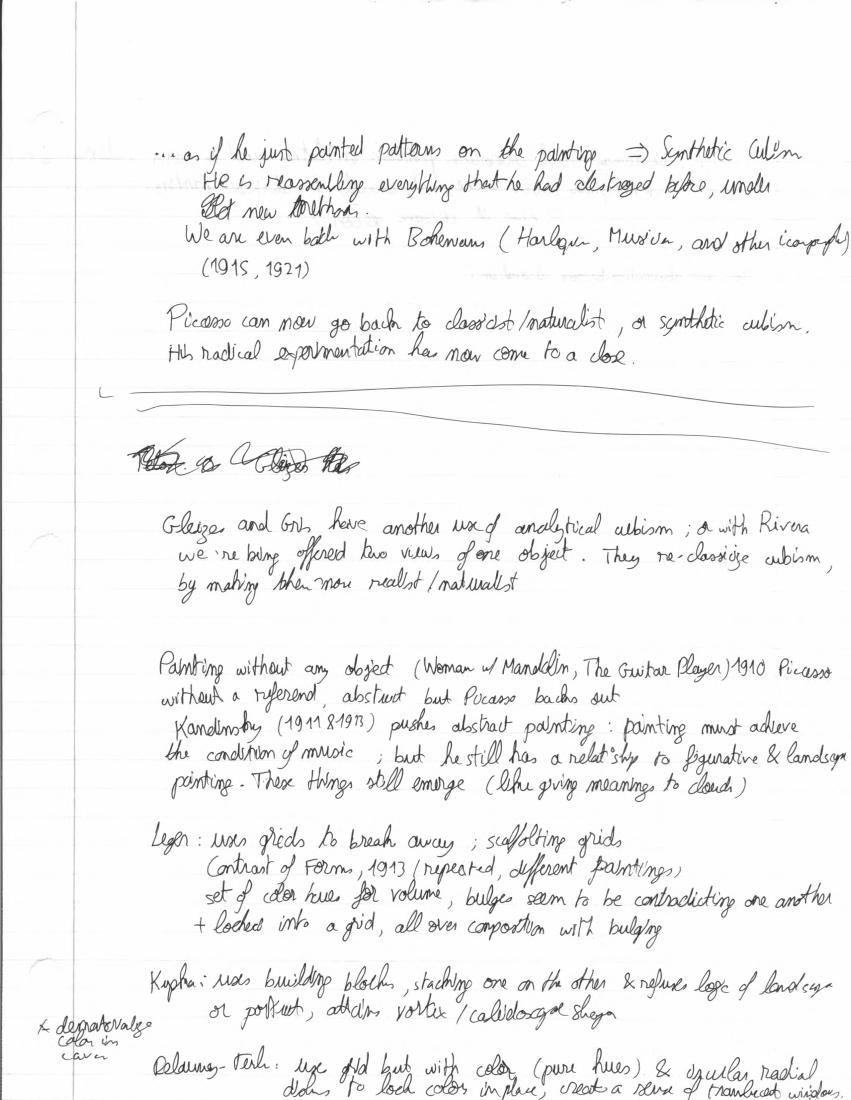 ... as if he just painted patterns on the painting ⇒ Synthetic Cubism
He is reassembling everything that he had destroyed before, under
new methods.
We are even back with Bohemians (Harlequin, Musician, and other iconography)
(1915, 1921)
Picasso can now go back to classicist/naturalist, or synthetic cubism.
His radical experimentation has now come to a close.
Gleizes and Gris have another use of analytical cubism ; or with Rivera
we're being offered two views of one object. They re-classicize cubism,
by making them more realist/naturalist
Painting without any object (Woman w/ Mandolin, The Guitar Player) 1910 Picasso
without a referend, abstract but Picasso backs out
Kandinsky (1911 & 1913) pushes abstract painting : painting must achieve
the condition of music ; but he still has a relat°ship to figurative & landscape
painting. These things still emerge (like giving meanings to clouds)
Leger : uses grids to break away ; scaffolting grids
Contrast of Forms, 1913 (repeated, different paintings)
set of color hues for volume, bulges seem to be contradicting one another
+ locked into a grid, all over composition with bulging
Kupka : uses building blocks, stacking one on the other & refuses logic of landscape
or portrait, attains vortex / caleidoscope
x dematerialize
color in
Delaunay-Terk : use grid but with color (pure hues) & circular, radial
disks to lock color in place, creat a sense of translucent windows.